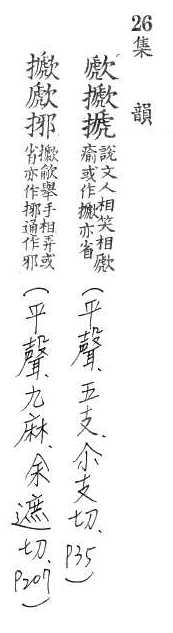 26 集韻
歋擨搋
說文人相笑相歋
瘉或作擨亦省
(平聲、五支、余支切、P35)
擨歋捓
擨歈舉手相弄或
省亦作捓通作邪
(平聲、九麻、余遮切、P207)